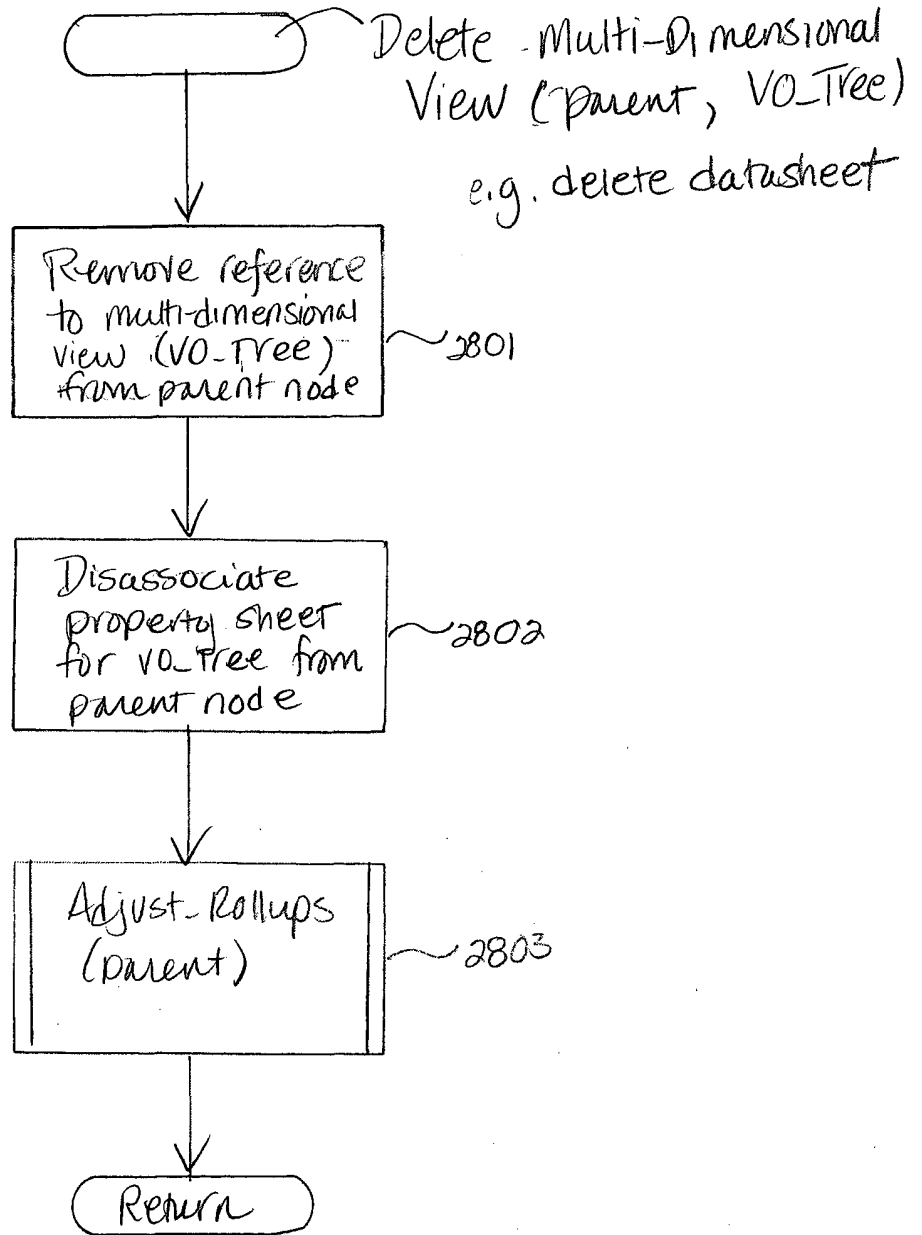 Delete-Multi-Dimensional
View (parent, VO_Tree)
e.g. delete datasheet
Remove reference
to multi-dimensional
view (VO_Tree)
from parent node
2801
Disassociate
property sheet
for VO_Tree from
parent node
2802
Adjust_Rollups
(parent)
2803
Return